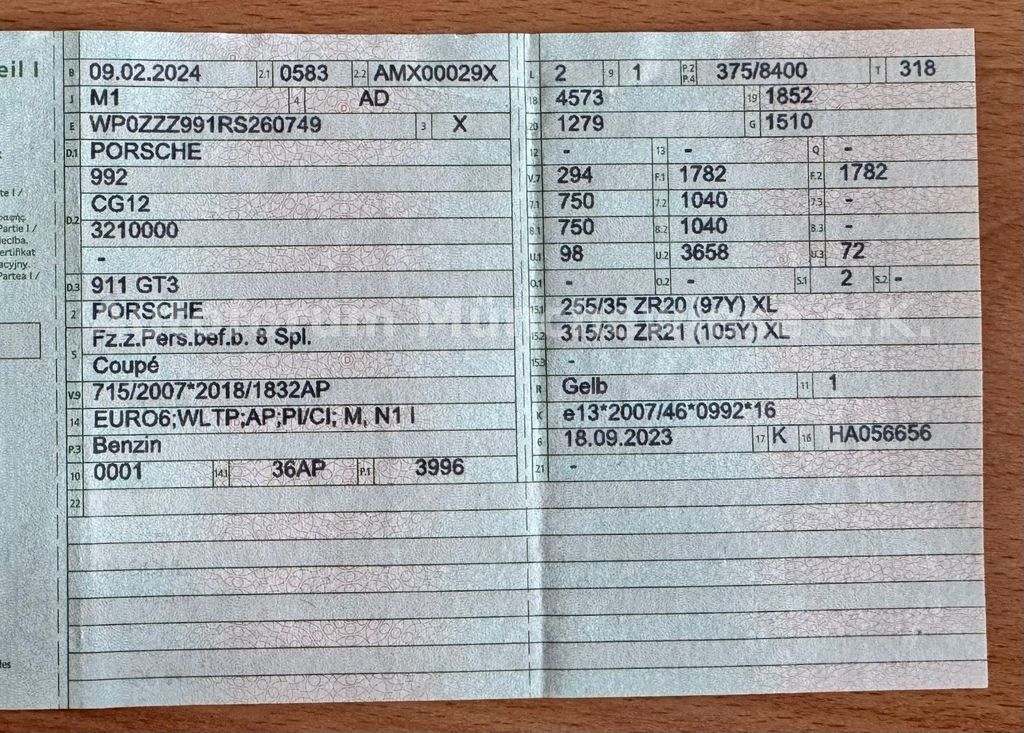 eil I
B 09.02.2024 2.1 0583 2.2 AMX00029X
J M1 4 AD
E WP0ZZZ991RS260749 3 X
D.1 PORSCHE
992
CG12
D.2 3210000
-
D.3 911 GT3
2 PORSCHE
Fz.z.Pers.bef.b. 8 Spl.
5 Coupé
V.9 715/2007*2018/1832AP
14 EURO6;WLTP;AP;PI/CI; M, N1 I
P.3 Benzin
10 0001 14.1 36AP P.1 3996
22
L 2 9 1 P.2 P.4 375/8400 T 318
18 4573 19 1852
20 1279 G 1510
12 - 13 - Q -
V.7 294 F.1 1782 F.2 1782
7.1 750 7.2 1040 7.3 -
8.1 750 8.2 1040 8.3 -
U.1 98 U.2 3658 U.3 72
O.1 - O.2 - S.1 2 S.2 -
15.1 255/35 ZR20 (97Y) XL
15.2 315/30 ZR21 (105Y) XL
15.3 -
R Gelb 11 1
K e13*2007/46*0992*16
6 18.09.2023 17 K 16 HA056656
21 -
te I /
Partie I /
ecība.
ertifikat
acyjny.
Partea I /
des